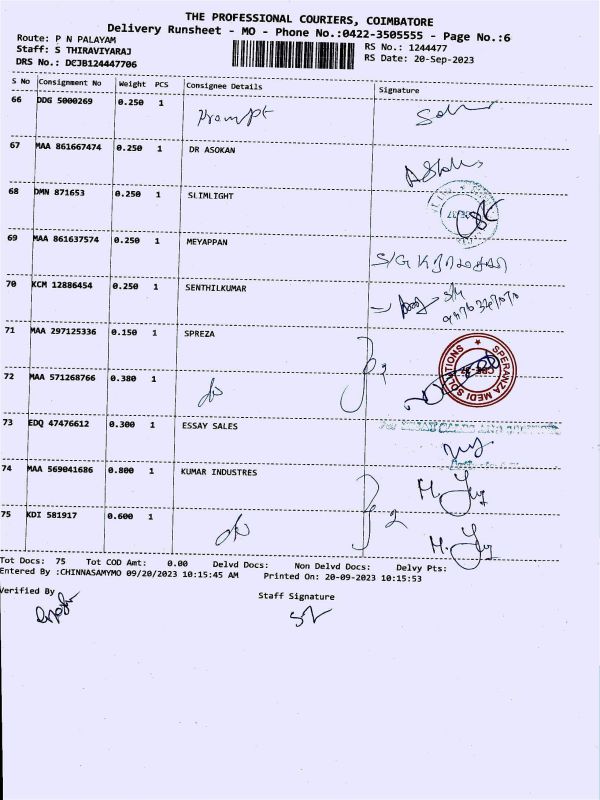 THE PROFESSIONAL COURIERS, COIMBATORE
Delivery Runsheet - MO - Phone No.:0422-3505555 - Page No.:6
Route: P N PALAYAM
Staff: S THIRAVIYARAJ RS No.: 1244477
DRS No.: DCJB124447706 RS Date: 20-Sep-2023
S No Consignment No Weight PCS Consignee Details Signature
66 DDG 5000269 0.250 1 Prompt
67 MAA 861667474 0.250 1 DR ASOKAN
68 DMN 871653 0.250 1 SLIMLIGHT
69 MAA 861637574 0.250 1 MEYAPPAN
70 KCM 12886454 0.250 1 SENTHILKUMAR
71 MAA 297125336 0.150 1 SPREZA
SPERANZA MEDI SOLUTIONS
72 MAA 571268766 0.380 1 do
73 EDQ 47476612 0.300 1 ESSAY SALES
74 MAA 569041686 0.800 1 KUMAR INDUSTRES
75 KDI 581917 0.600 1 do
Tot Docs: 75 Tot COD Amt: 0.00 Delvd Docs: Non Delvd Docs: Delvy Pts:
Entered By :CHINNASAMYMO 09/20/2023 10:15:45 AM Printed On: 20-09-2023 10:15:53
Verified By Staff Signature